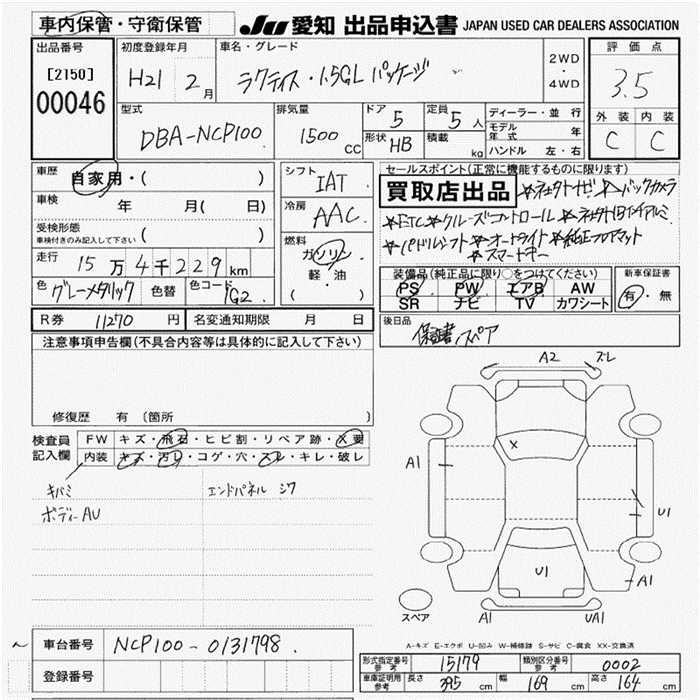 車内保管・守衛保管 JU 愛知 出品申込書 JAPAN USED CAR DEALERS ASSOCIATION
出品番号 初度登録年月 車名・グレード 評価点
[2150] H21 2月 ラクティス・1.5GL パッケージ 2WD・4WD 3.5
00046
外装 内装
C C
型式 DBA-NCP100
排気量 1500 CC
ドア 5
定員 5人
形状 HB
積載 kg
ディーラー・並行
モデル年式 年
ハンドル 左・右
車歴 自家用・( )
車検 年 月( 日)
受検形態 車検付きのみ記入して下さい ( )
走行 15万4千229km
色 グレーメタリック 色替 色コード 1G2
シフト IAT
冷房 AAC
燃料 ガソリン・軽・油
( )
セールスポイント(正常に機能するものに限ります)
買取店出品 ☆バックカメラ
☆ETC☆クルーズコントロール
☆パドルシフト☆オートライト☆純正フロアマット
☆スマートキー
装備品(純正品に限り○をつけてください) 新車保証書
PS PW エアB AW 有・無
SR ナビ TV カワシート
R券 11270円 名変通知期限 月 日
後日品 保証書 スペア
注意事項申告欄(不具合内容等は具体的に記入して下さい)
修復歴 有 (箇所 )
検査員記入欄 FW キズ・飛石・ヒビ割・リペア跡・X要
内装 キズ・汚レ・コゲ・穴・スレ・キレ・破レ
キバミ エンドパネル シワ
ボディーAU
A2 ズレ
X
A1
U1
U1
A1
A1 UA1
スペア
A-キズ E-エクボ U-凹み W-補修跡 S-サビ C-腐食 XX-交換済
車台番号 NCP100-0131798
登録番号
形式指定番号 参考 15179 類別区分番号 参考 0002
車庫証明用 参考 長さ 395cm 幅 169cm 高さ 164cm